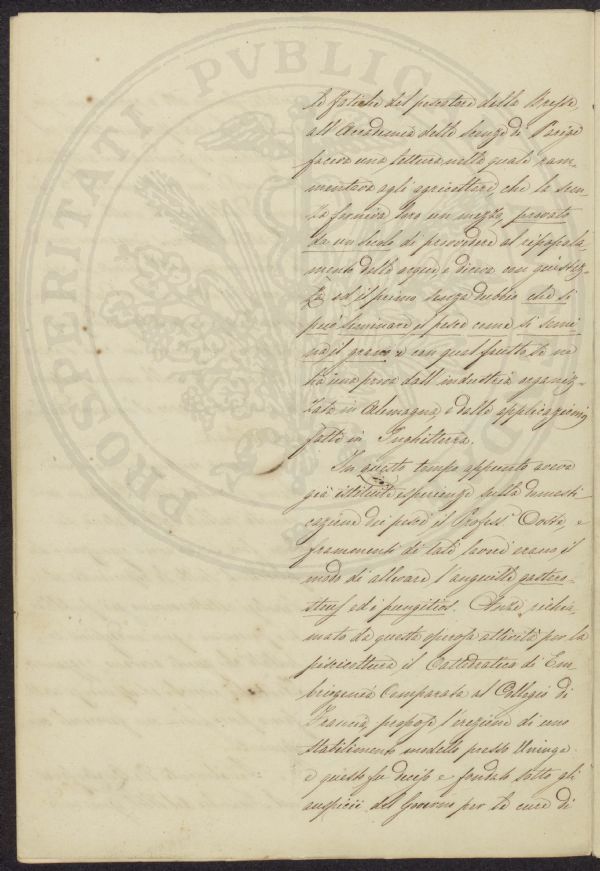 PROSPERITATI PVBLIC
le fatiche del pescatore della Bresse,
all'Accademia delle Scienze di Parigi
faceva una lettura nella quale ram-
mentava agli agricoltori, che la scien-
za forniva loro un mezzo, provato
da un secolo di provvedere al ripopola-
mento delle acque e diceva con giustez-
za ed il primo senza dubbio che si
può seminare il pesce come si semi-
na il grano e con qual frutto se ne
ha una prova dall'industria organiz-
zata in Alemagna, e dalle applicazioni
fatte in Inghilterra.
In questo tempo appunto aveva
già istituite esperienze sulla domesti-
cazione dei pesci, il Profess. Coste, e
frammenti di tali lavori erano il
modo di allevare l'anguille gastero-
steus ed i pungitios. Anzi richia-
mato da questa operosa attività per la
piscicoltura il Cattedratico di Em-
briogenia Comparata al Collegio di
Francia, propose l'erezione di uno
stabilimento modello presso Uninga
e questo fu deciso e fondato sotto gli
auspicii del Governo per le cure di